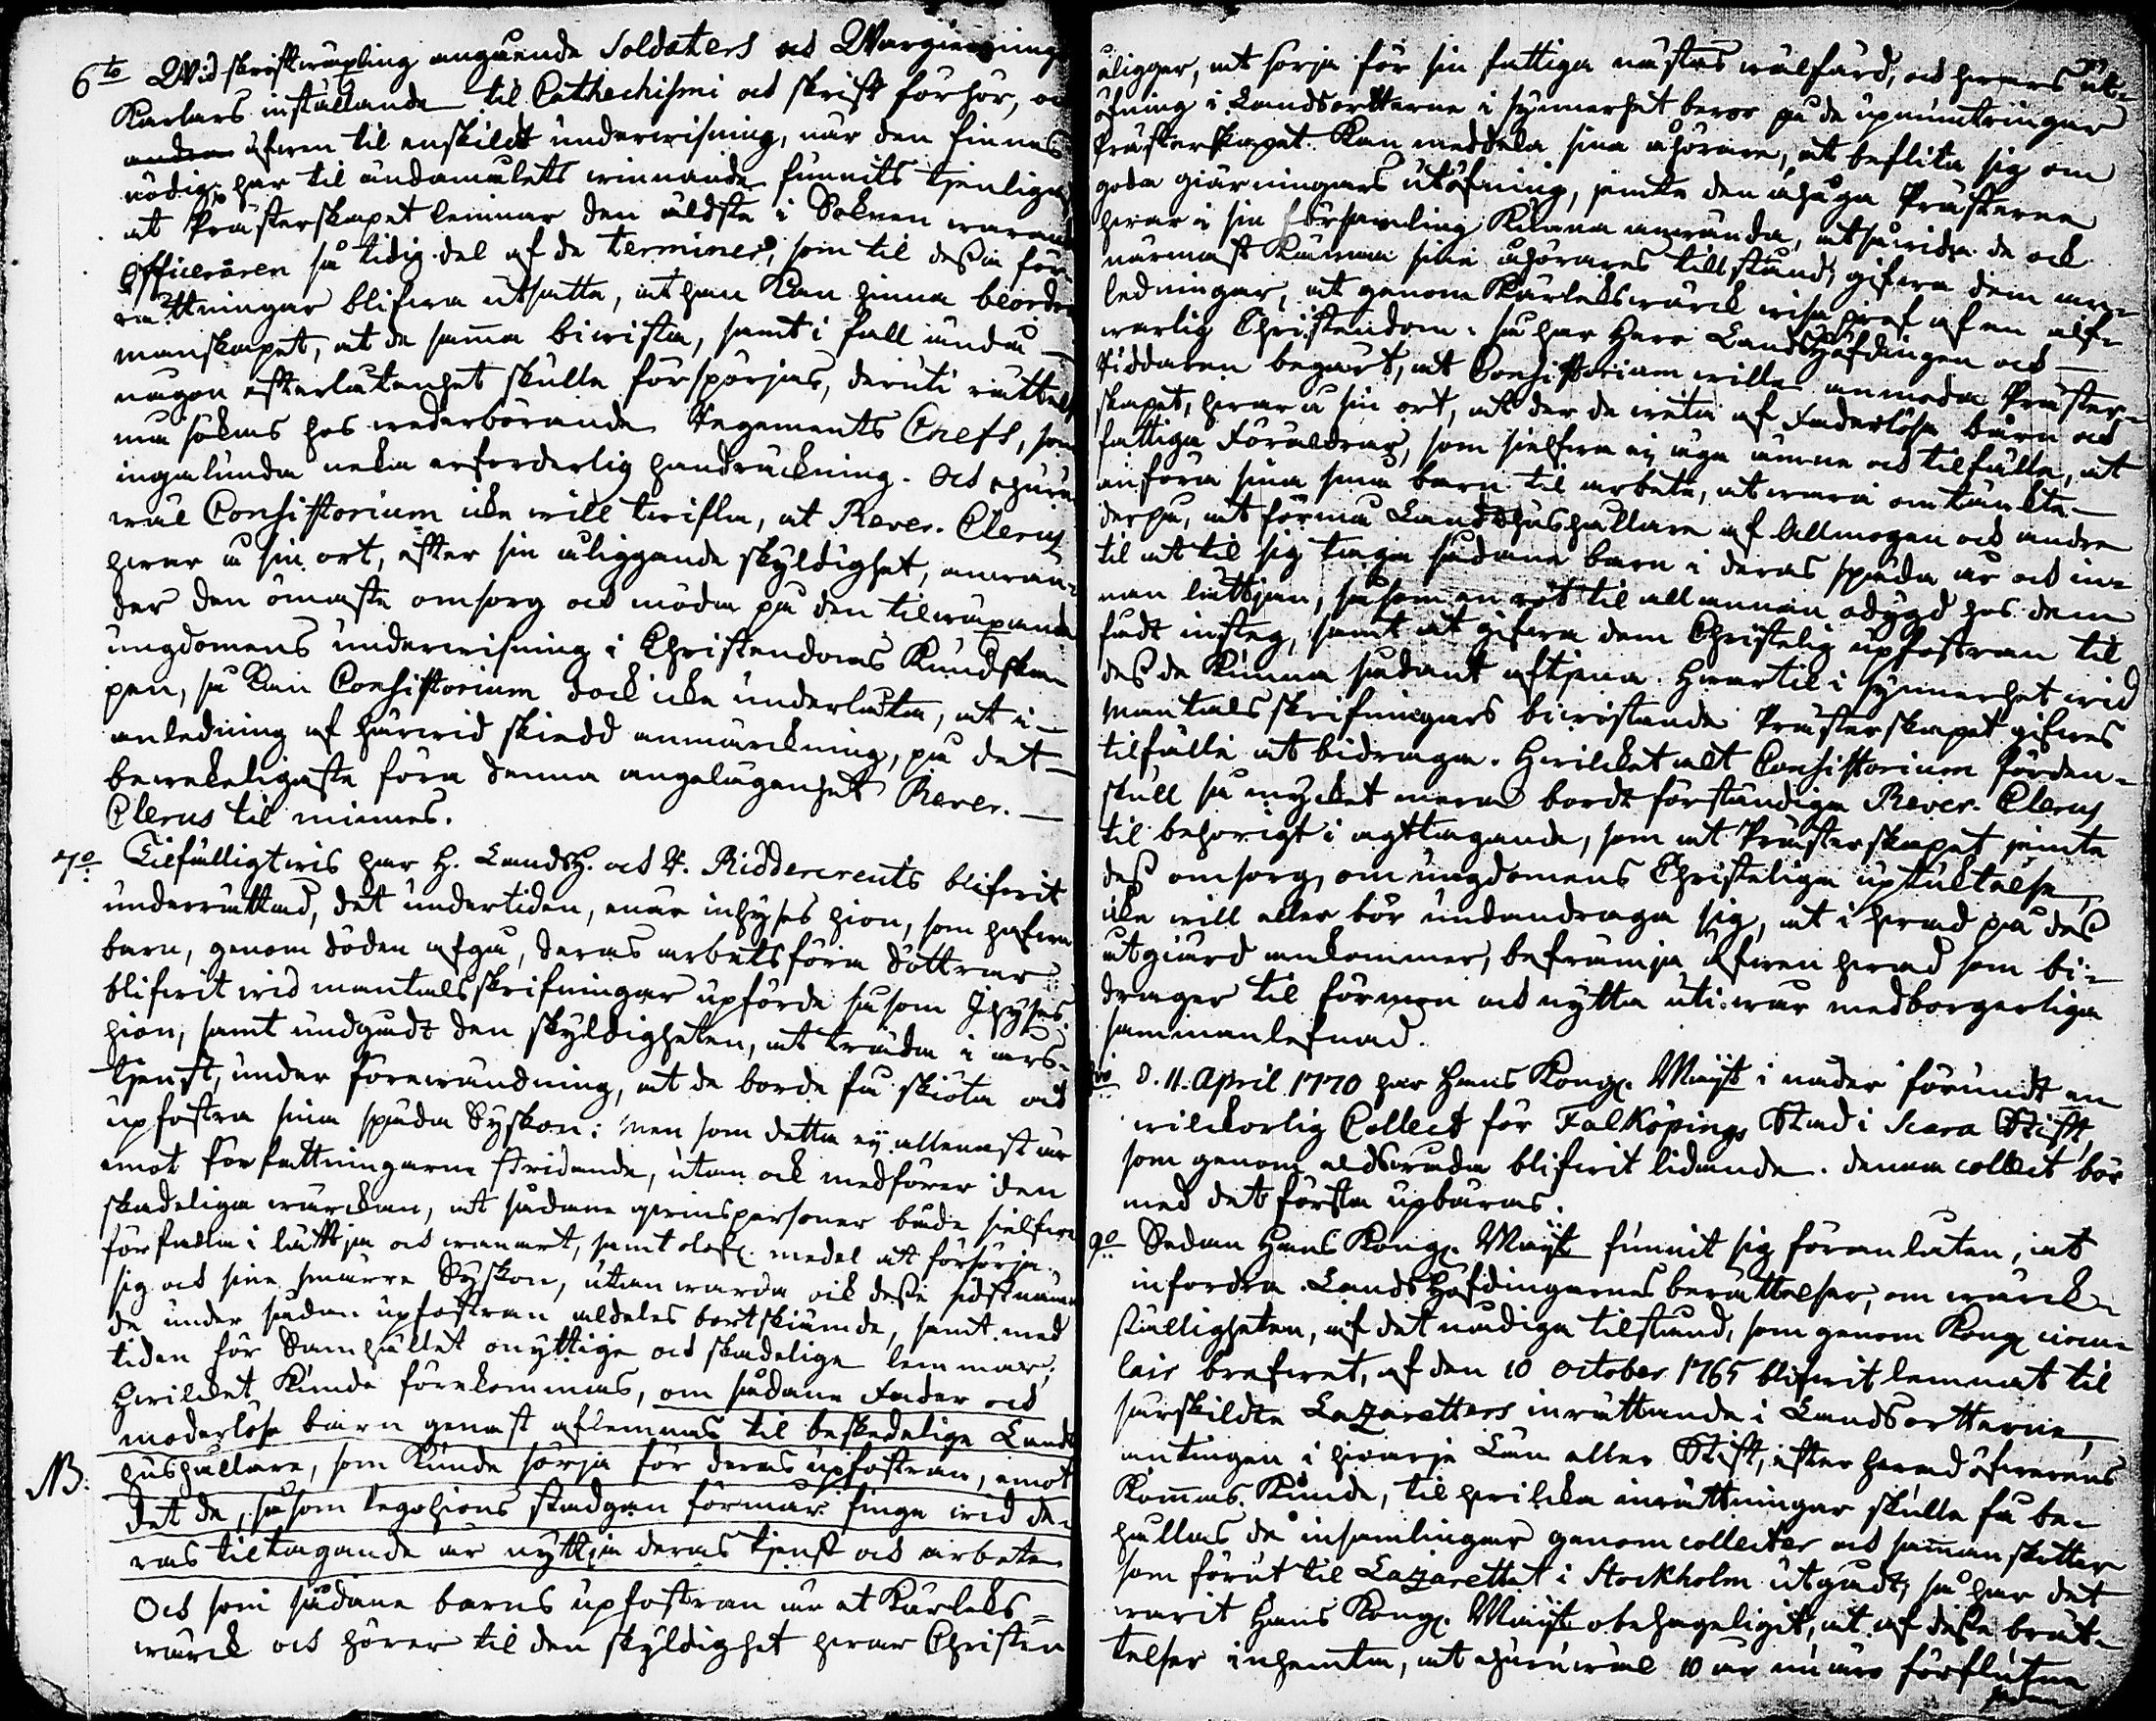 6to Wid skriftwäxling angående Soldaters och Wargierings
Karlars inställande til Cathechismi och skrift förhör, och
andra äfwen til enskildt underwisning, när den finnes
nödig, har til ändamålets winnande funnits tjenligast
at Prästerskapet lemnar den äldste i Soknen warande
Officeraren så tidig del af de terminer, som til dessa för-
rättningar blifwa utsatte, at han kan hinna beordra
manskapet, at de samma biwista, samt i fall ändå
någon efterlåtenhet skulle förspörjas, deruti rättelse
må sökas hos wederbörande Regements Chefs, som
ingalunda neka erforderlig handräckning. Och ehuru
wäl Consistorium icke will twifla, at Rever. Clerus
hwar å sin ort, efter sin åliggande skyldighet, anwän-
der den ömaste omsorg och möda på den tilwäxande
ungdomens underwisning i Christendoms Kundska-
pen, så kan Consistorium dock icke underlåta, at i
anledning af härwid skiedd anmärckning, på det
bewekeligaste föra denna angelägenhet Rever.
Clerus til minnes.
7o Tilfälligtwis har H. Landsh. och R. Riddererents blifwit
underrättad, det undertiden, enär inhyses hion, som hafwa
barn, genom döden afgå, deras arbetsföra döttrar
blifwit wid mantalsskrifningar upförde såsom Ihyses
hion, samt undgådt den skyldigheten, at träda i års-
tjenst, under förewändning, at de borde få skiöta och
upfostra sina späda Syskon; Men som detta ej allenast är
emot författningarne stridande, utan ock medförer den
skadeliga wärckan, at sådane qwinspersoner både sielfwa
förfalla i lättja och wanart, samt olofl. medel at försörja
sig och sine smärre Syskon, utan warda ock desse sidstnämn
de under sådan upfostran aldeles bortskiämde, samt med
tiden för Samhället onyttige och skadelige lemmar;
Hwilcket kunde förekommas, om sådane Fader och
moderlöse barn genast aflemnas til beskedelige Lands
hushållare, som kunde sörja för deras upfostran, emot
NB. det de, såsom legohions stadgan förmår finge wid de-
ras tiltagande år nyttja deras tjenst och arbete.
Och som sådane barns upfostran är et Kärleks-
wärck och hörer til den skyldighet hwar Christen
åligger, at sörja för sin fattiga nästas wälfärd, och hwars ut-
öfning i Landsortterne i synnerhet beror på de upmuntringar
Prästerskapet kan meddela sina åhörare, at beflita sig om
goda giärningars utöfning, jemte den åhuga Prästerne
hwar i sin församling kunna använda, at såwida de ock
närmast känna sine åhörares tillstånd, gifwa dem an-
ledningar, at genom Kärlekswärck wisa prof af en alf-
warlig Christendom. så har Herr Landshöfdingen och
Riddaren begärt, at Consistorium wille anmoda Präster-
skapet, hwar å sin ort, at der de weta af Faderlösa barn och
fattiga Föräldrar, som sielfwa ej äga ämne och tilfälle, at
anföra sina små barn til arbete, at wara omtänkte
derpå, at förmå Landthushållare af Allmogen och andre
til at til sig taga sådane barn i deras späda år och in-
nan lättjan, såsom en rot til all annan odygd hos dem
fådt insteg, samt at gifwa dem Christelig upfostran til
dess de kunna sådant aftjena. Hwartil i synnerhet wid
Mantalsskrifningars biwistande Prästerskapet gifwes
tilfälle at bidraga. Hwilcket alt Consistorium fördén-
skull så mycket mera bordt förständiga Rever. Clerus
til behörigt i agttagande, som at Prästerskapet jemte
dess omsorg om ungdomens Christeliga uptuktelse,
icke will eller bör undandraga sig, at i hwad på dess
åtgiärd ankommer, befrämja äfwen hwad som bi-
drager til förmon och nytta uti wår medborgerliga
sammanlefnad.
8vo d. 11. April 1770 har Hans Kongl. Maijst i nåder förundt en
wilckorlig Collect för Falköpings Stad i Scara Stift,
som genom eldswåda blifwit lidande. denna collect bör
med det första upbäras.
9o Sedan Hans Kongl. Maijst funnit sig föranlåten, at
infordra Landshöfdingarnes berättelser, om wärck-
ställigheten, af det nådiga tilstånd, som genom Kongl circu-
lair brefwet, af den 10 october 1765 blifwit lemnat til
särskildte Lazaretters inrättande i Landsortterne,
antingen i hwarje Län eller Stift, efter hwad öfwerens
kommas kunde, til hwilcka inrättningar skulle få be-
hållas de insamlingar genom collecter och sammanskotter
som förut til Lazarettet i Stockholm utgådt, så har det
warit Hans Kongl. Maijst obehageligit, at af desse berät-
telser inhemta, at ehuruwäl 10 år nu äro förflutna
sedan